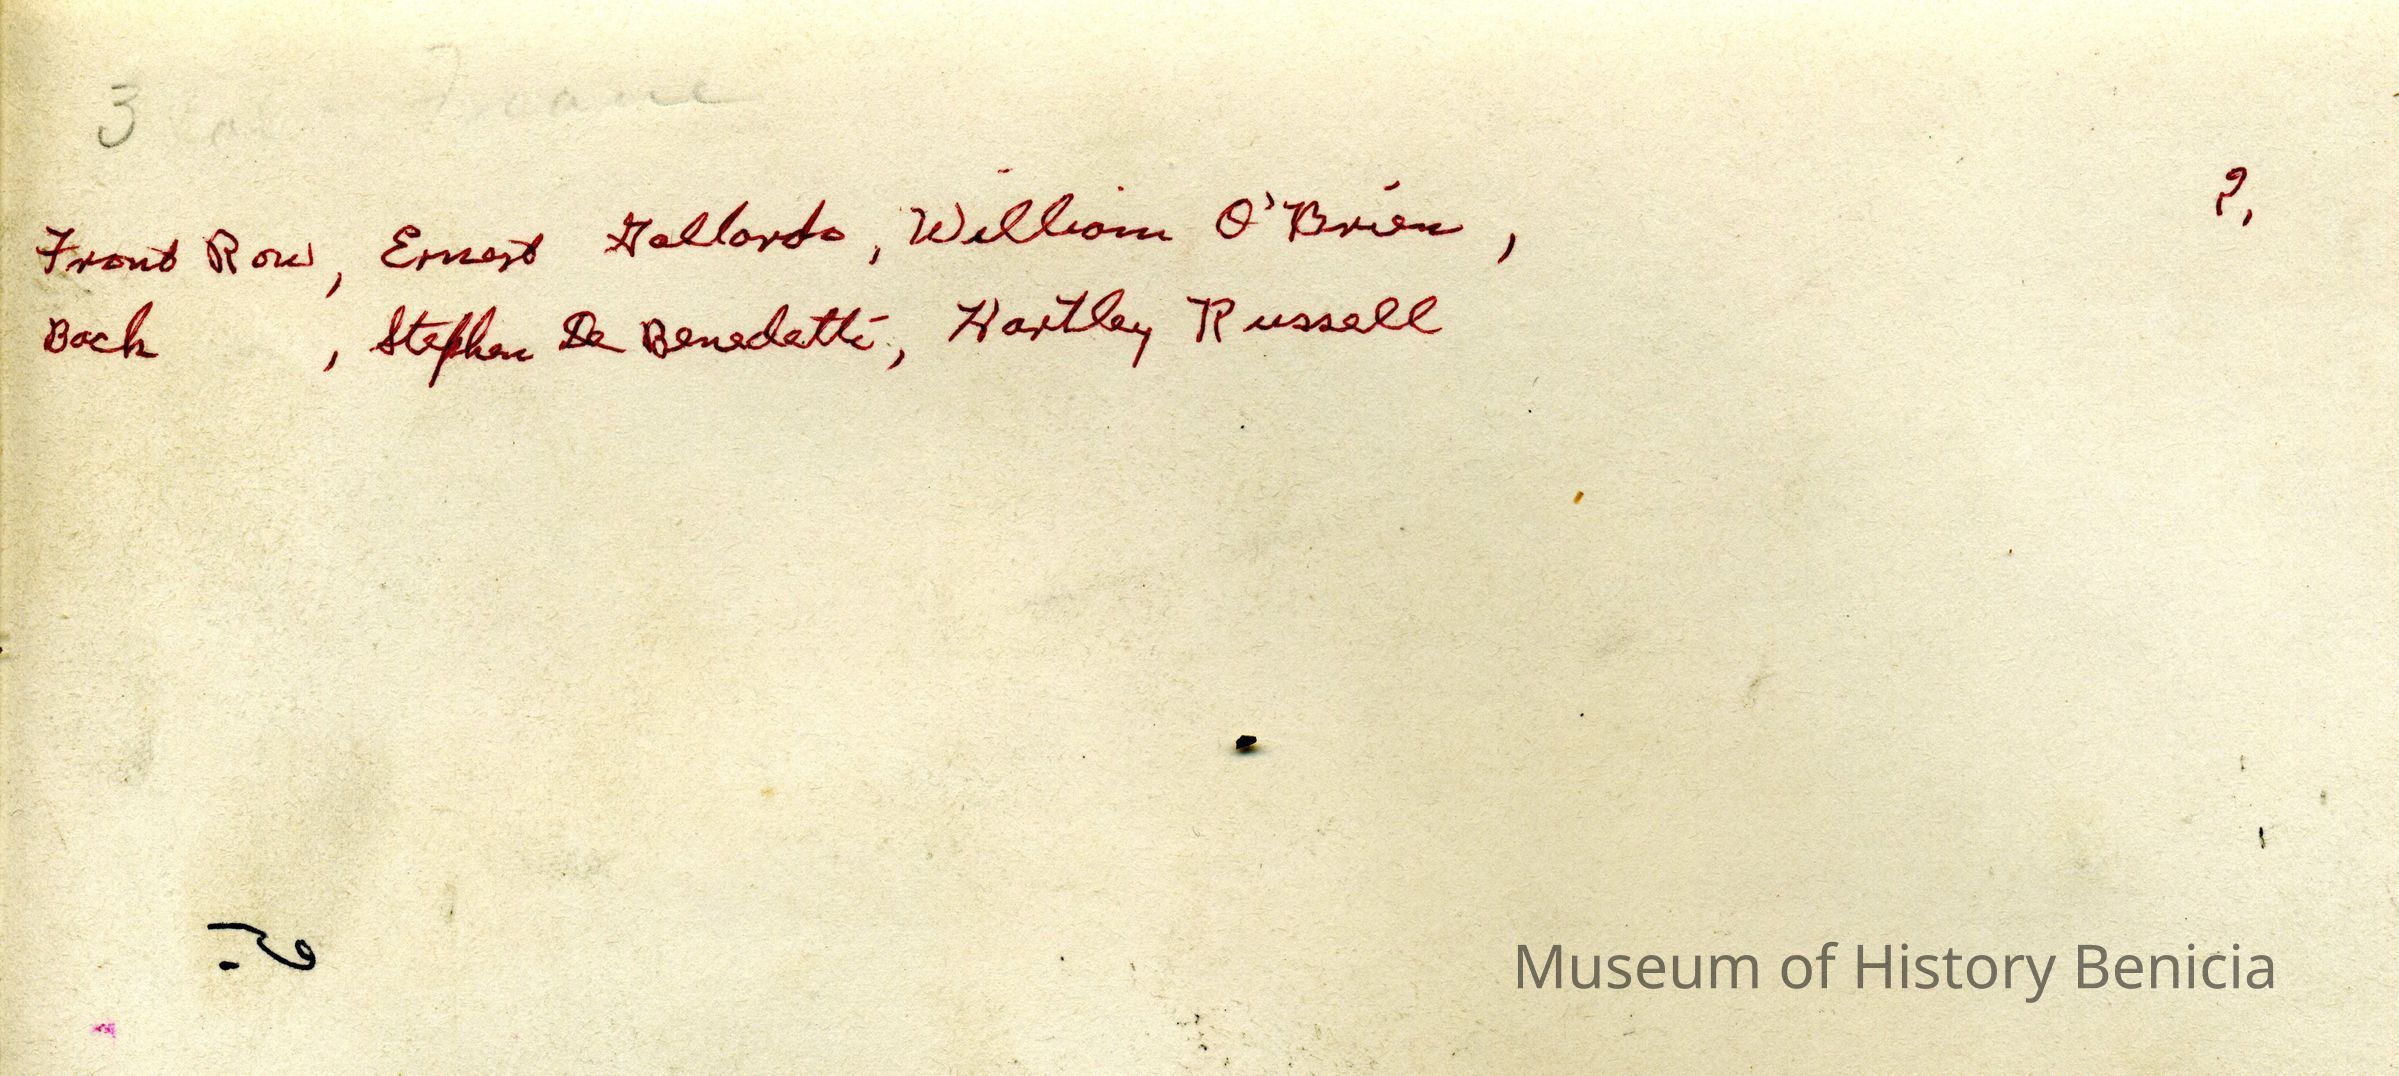 3
Front Row, Ernest Gallardo, William O'Brien, ?,
Back , Stephen De Benedetti, Hartley Russell
Museum of History Benicia